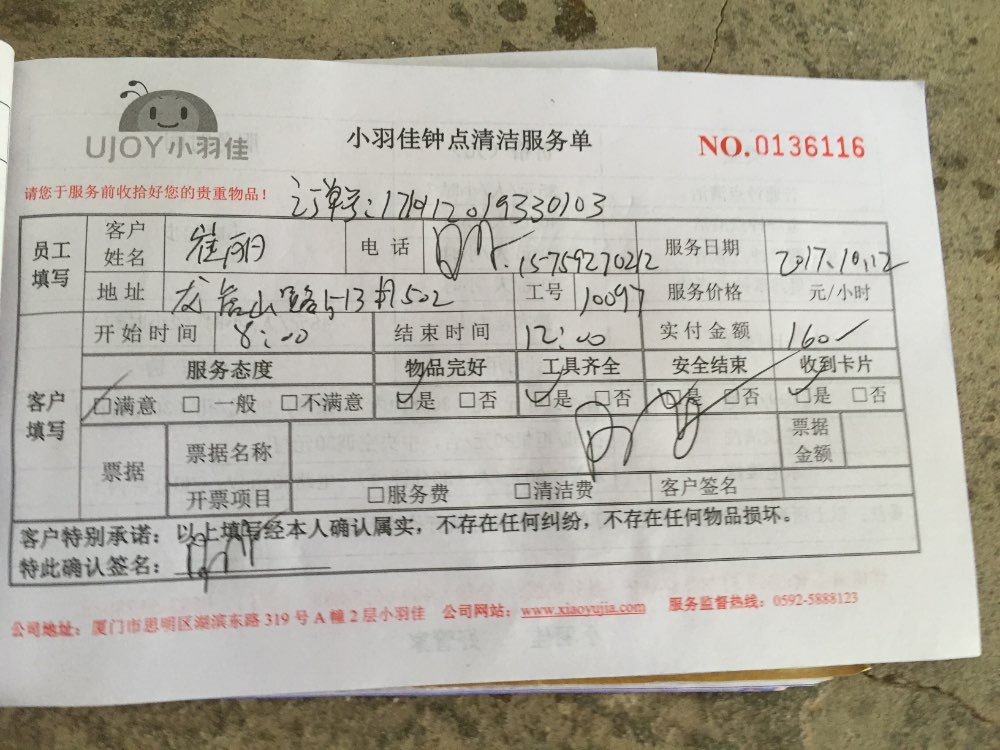 UJOY小羽佳
小羽佳钟点清洁服务单
NO.0136116
请您于服务前收拾好您的贵重物品！
订单号:171912019330103
员工填写 客户姓名 崔丽 电话 15759270212 服务日期 2017.10.12
地址 山路513 502 工号 10097 服务价格 元/小时
客户填写 开始时间 8:00 结束时间 12:00 实付金额 160
服务态度 物品完好 工具齐全 安全结束 收到卡片
□满意 □一般 □不满意 □是 □否 □是 □否 □是 □否 □是 □否
票据 票据名称 票据金额
开票项目 □服务费 □清洁费 客户签名
客户特别承诺：以上填写经本人确认属实，不存在任何纠纷，不存在任何物品损坏。
特此确认签名：
公司地址：厦门市思明区湖滨东路319号A幢2层小羽佳 公司网站：www.xiaoyujia.com 服务监督热线：0592-5888123